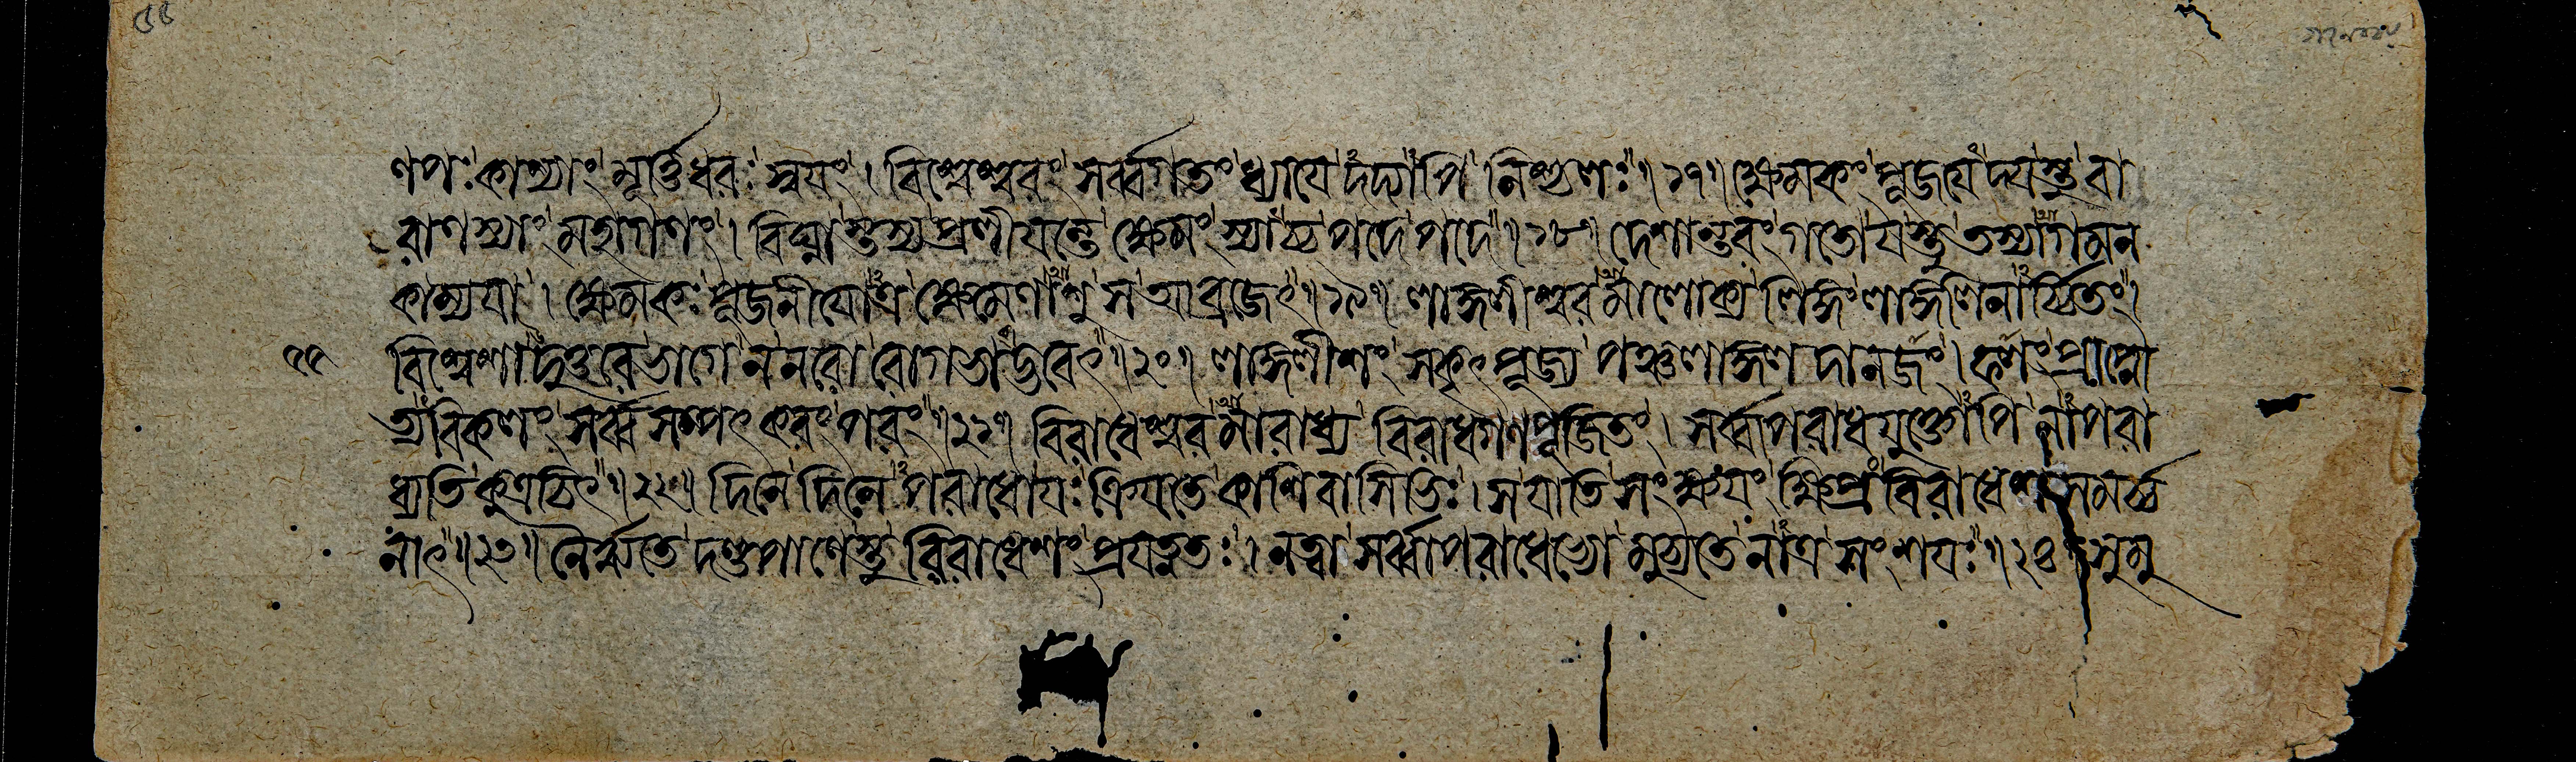 ণপঃ কাশ্যাং মূর্ত্তিধরঃ স্বয়ং । বিশ্বেশ্বরং সর্ব্বগতং ধ্যায়েদদ্যাপি নিশ্চলঃ ॥ ১৭ ॥ ক্ষেমকং পূজয়েদ্যস্তু বা
রাণস্যাং মহাগণং । বিঘ্নাস্তস্য প্রলীয়ন্তে ক্ষেমং স্যাচ্চ পদে পদে ॥ ১৮ ॥ দেশান্তরং গতো যস্তু তস্যাগমন
কাম্যয়া । ক্ষেমকঃ পূজনীয়োত্র ক্ষেমেণাশু স আব্রজেৎ ॥ ১৯ ॥ লাঙ্গলীশ্বরমালোক্য লিঙ্গং লাঙ্গলিনার্চ্চিতং ।
৫৫ বিশ্বেশাদুত্তরে ভাগে ন নরো রোগভাগ্ভবেৎ ॥ ২০ ॥ লাঙ্গলীশং সকৃৎ পূজ্য পঞ্চলাঙ্গল দানজং । ফলং প্রাপ্নো
ত্যবিকলং সর্ব্বসম্পৎ করং পরং ॥ ২১ ॥ বিরাধেশ্বরমারাধ্য বিরাধগণপূজিতং । সর্ব্বাপরাধযুক্তোপি নাপরা
ধ্যতি কুত্রচিৎ ॥ ২২ ॥ দিনে দিনেপরাধো যঃ ক্রিয়তে কাশিবাসিভিঃ । স যাতি সংক্ষয়ং ক্ষিপ্রং বিরাধেশ সমর্চ্চ
নাৎ ॥ ২৩ ॥ নৈর্ঋতে দণ্ডপাণেস্তু বিরাধেশং প্রযত্নতঃ । নত্বা সর্ব্বাপরাধেভ্যো মুচ্যতে নাত্র সংশয়ঃ ॥ ২৪ ॥ সুমু